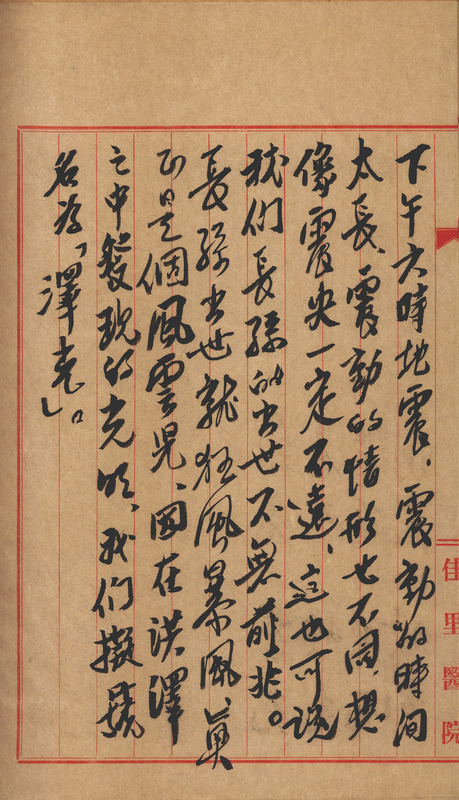 佳里醫院
下午六時地震，震動的時间
太長、震動的情形也不同、想
像震央一定不遠，這也可說
我们長孫的出世不無前兆。
長孫出世就狂風暴風、真
正是個風雲児、因在洪澤
之中發現的光明、我们擬號
名為「澤」。